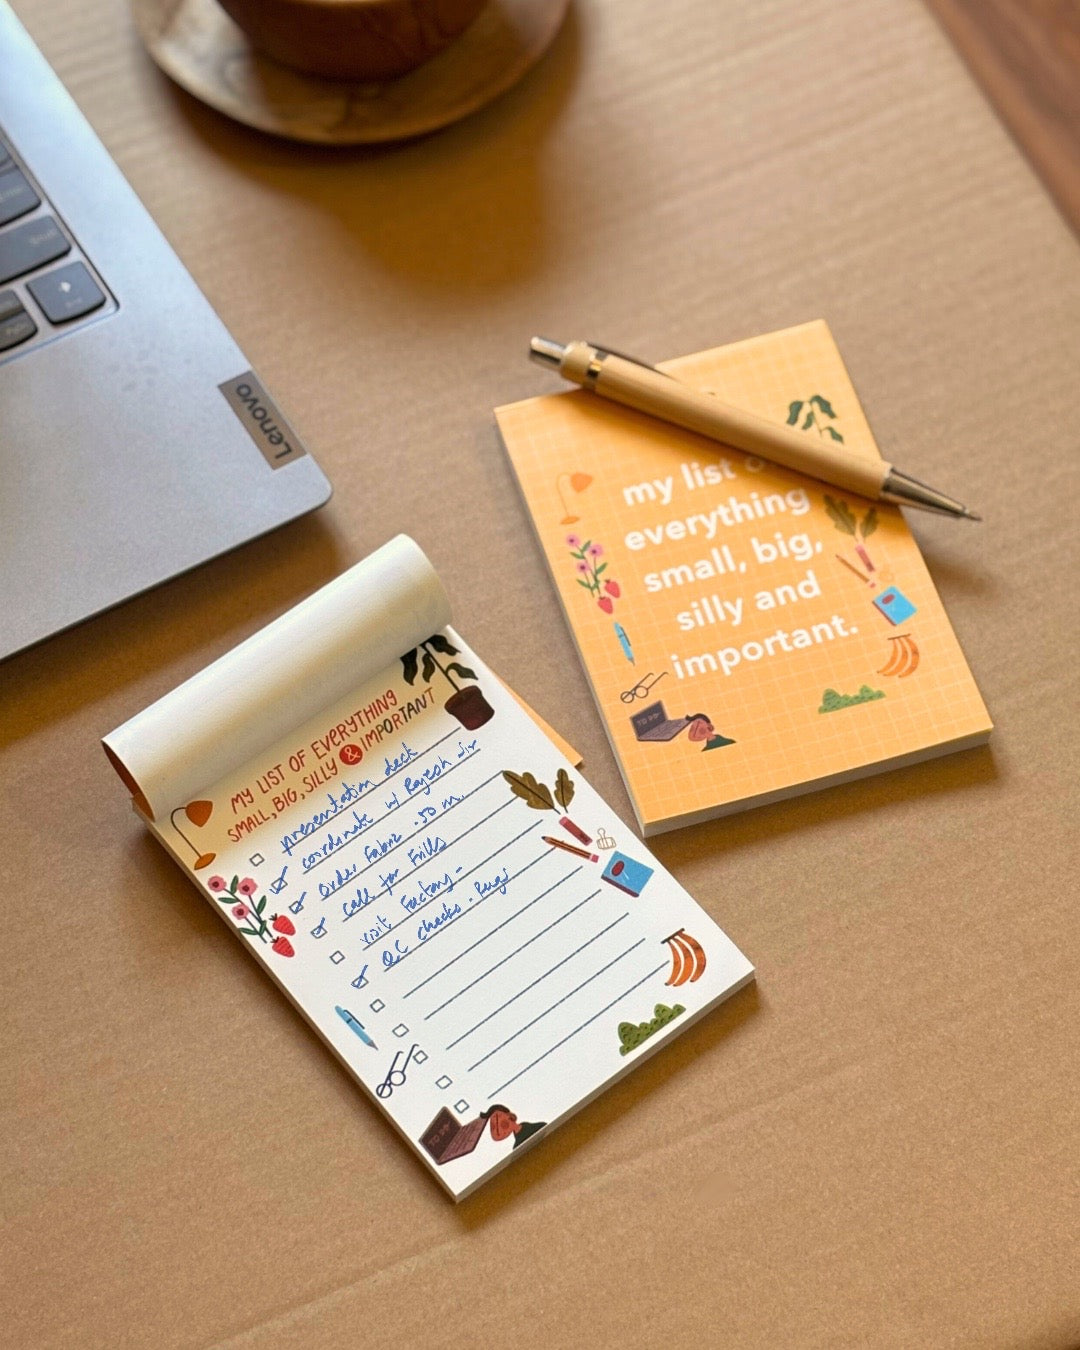 Lenovo
my list
everything
small, big,
silly and
important.
MY LIST OF EVERYTHING
SMALL, BIG, SILLY & IMPORTANT
presentation deck
coordinate w/ Rajesh sir
order Fabric . 50 m.
call for Frills
visit Factory -
QC checks - Rugs